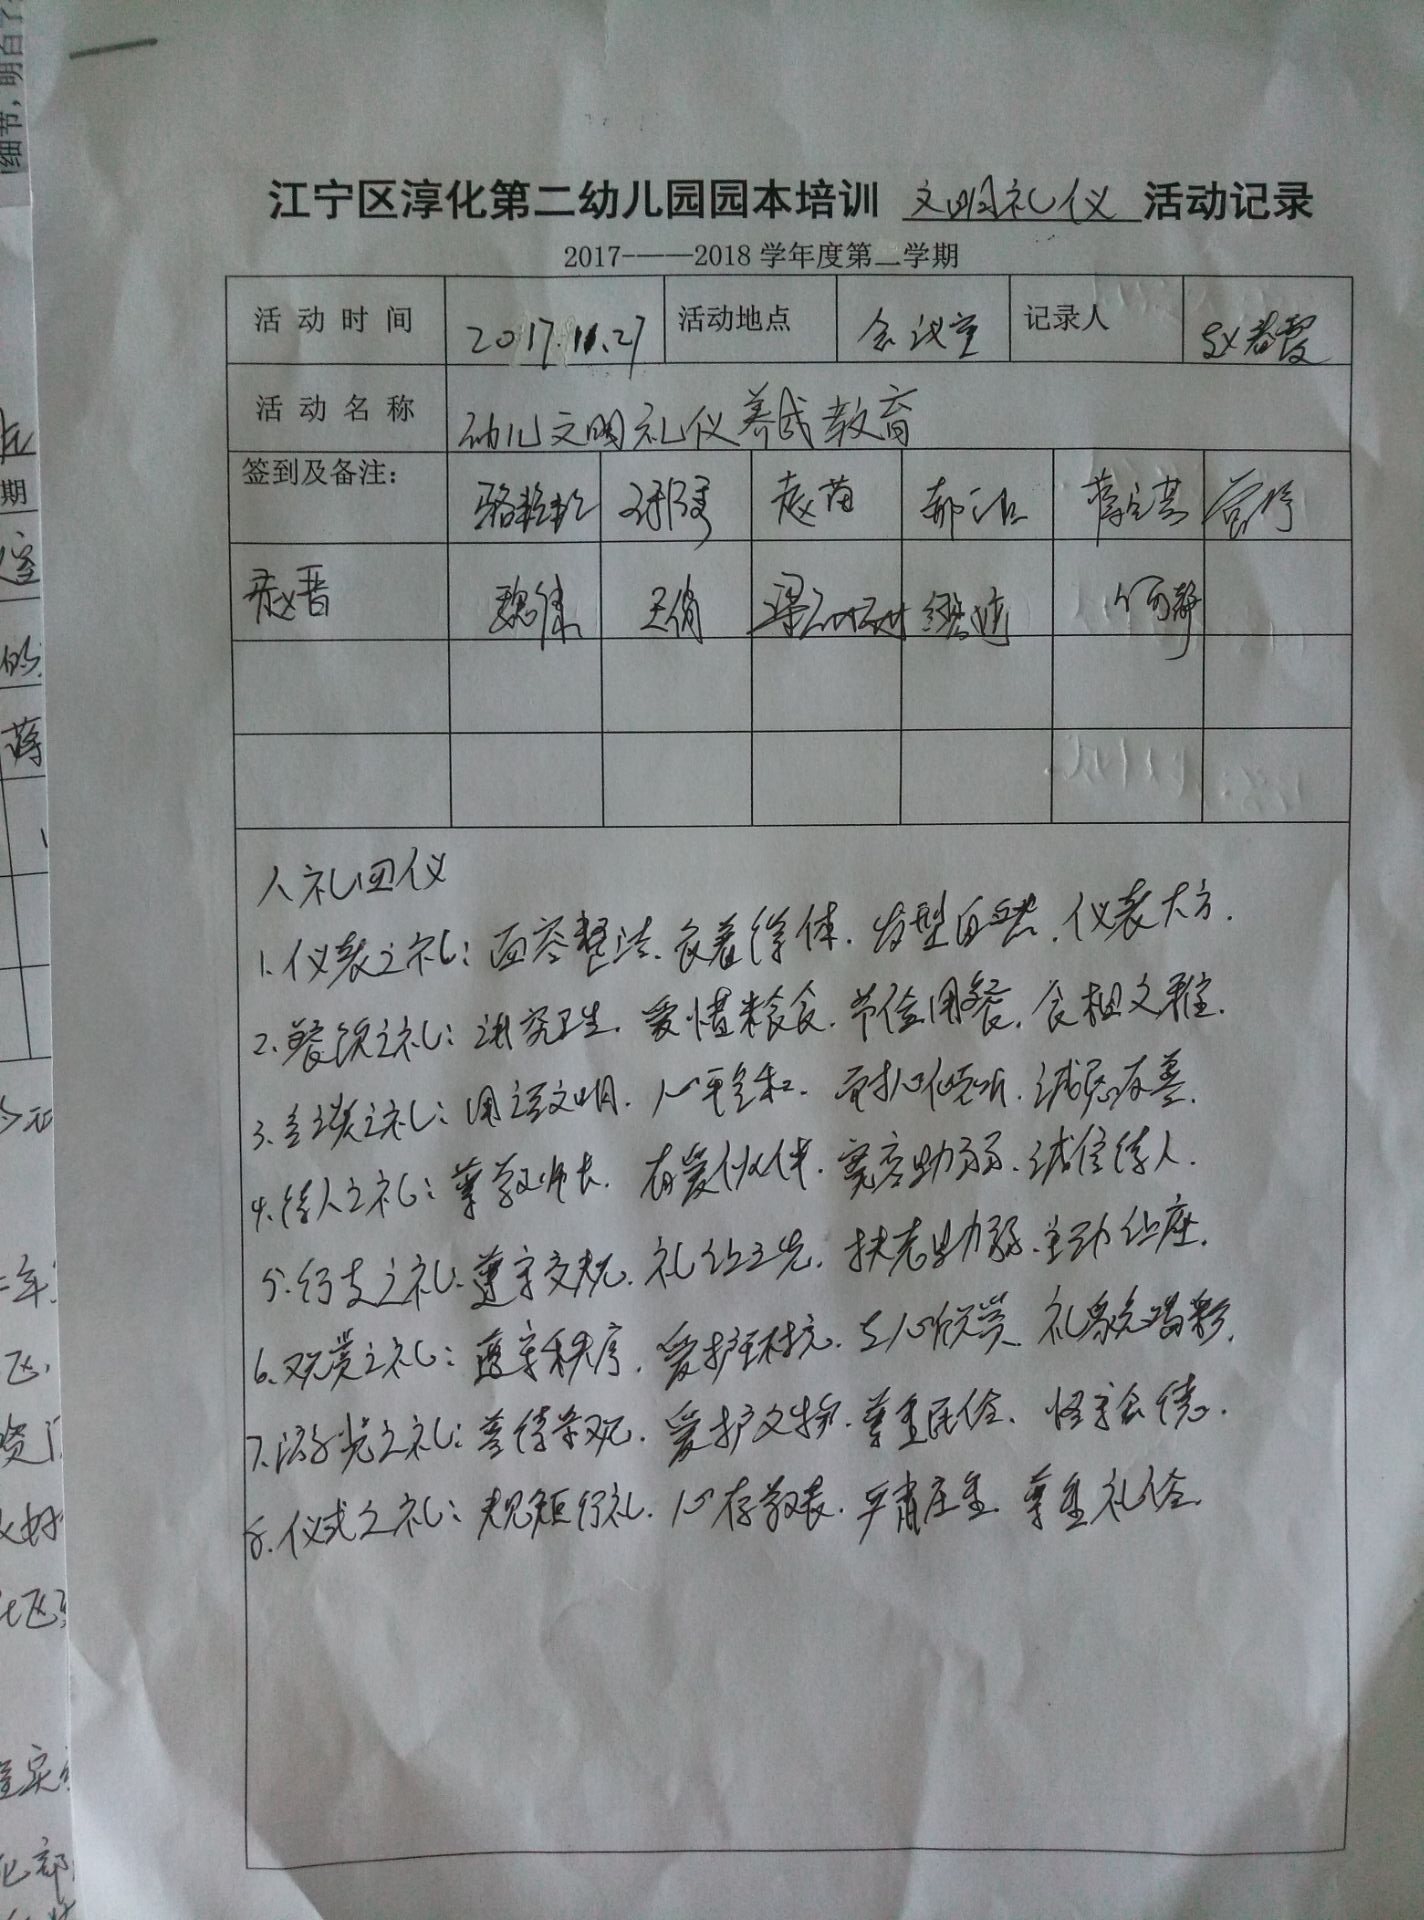 细节，明白了
江宁区淳化第二幼儿园园本培训 文明礼仪 活动记录
2017-——2018 学年度第二学期
活动时间 2017.11.27 活动地点 会议室 记录人 赵春霞
活动名称 幼儿文明礼仪养成教育
签到及备注： 赵苗
赵晋 魏倩 王倩 何静
八礼四仪
1. 仪表之礼：面容整洁、衣着得体、发型自然、仪表大方.
2. 餐饮之礼：讲究卫生、爱惜粮食、节俭用餐、食相文雅.
3. 言谈之礼：用语文明、心平气和、耐心倾听、诚恳友善.
4. 待人之礼：尊敬师长、有爱伙伴、宽容助弱、诚信待人.
5. 行走之礼、遵守交规、礼让三先、扶老助弱、主动让座.
6. 观赏之礼：遵守秩序、爱护环境、专心欣赏、礼貌喝彩.
7. 游览之礼：善待景观、爱护文物、尊重民俗、恪守公德.
8. 仪式之礼：规矩行礼、心存敬畏、严肃庄重、尊重礼俗.